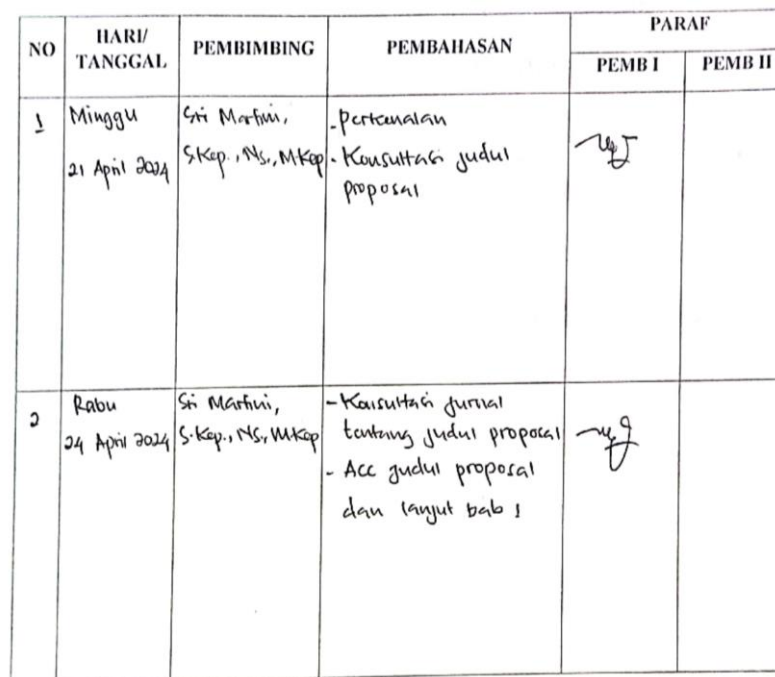 NO
HARI/
TANGGAL
PEMBIMBING
PEMBAHASAN
PARAF
PEMB I
PEMB II
1
Minggu
21 April 2024
Sri Martini,
S.Kep., Ns., M.Kep
- Perkenalan
- Konsultasi judul
proposal
2
Rabu
24 April 2024
Sri Martini,
S.Kep., Ns., M.Kep
- Konsultasi jurnal
tentang judul proposal
- Acc judul proposal
dan lanjut bab 1